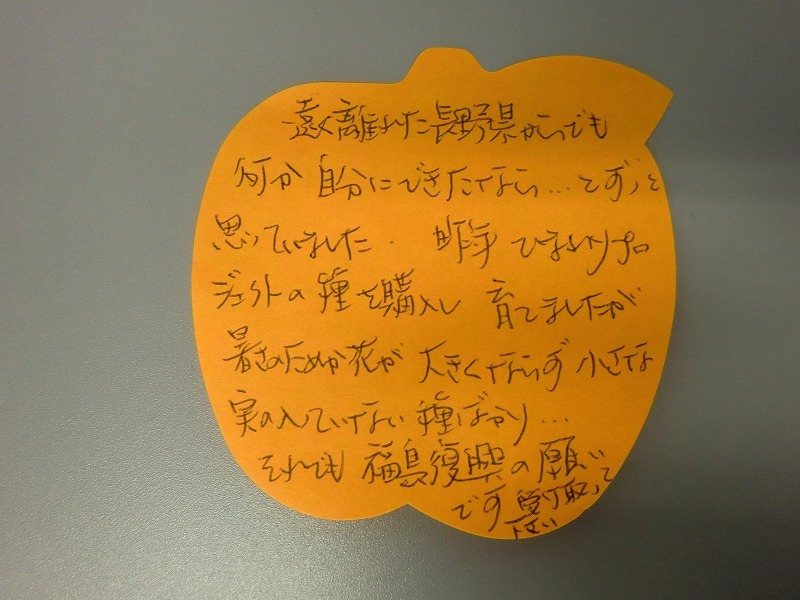 遠く離れた長野県からでも
何か自分にできたなら…とずっと
思っていました. 昨年ひまわりプロ
ジェクトの種を購入し 育てましたが
暑さのためか花が大きくならず小さな
実の入っていない種ばかり…
それでも福島復興の願い
です 受け取って
下さい